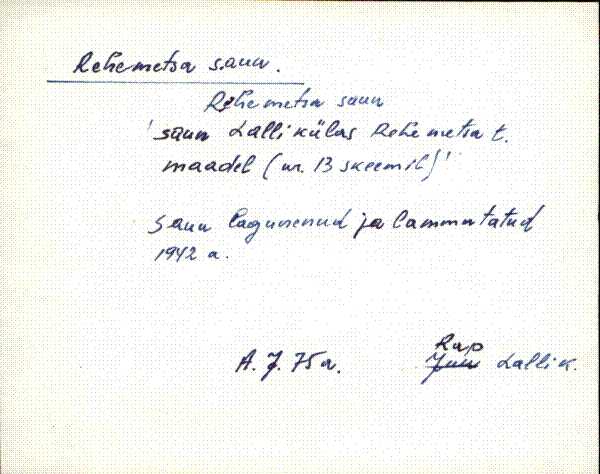 Rehemetsa saun.
Rehemetsa saun
'saun Lalli külas Rehemetsa t.
maadel (nr. 13 skeemil)'
Saun lagunenud ja lammutatud
1942 a.
Rap
A. J. 75 a. Juu Lalli k.